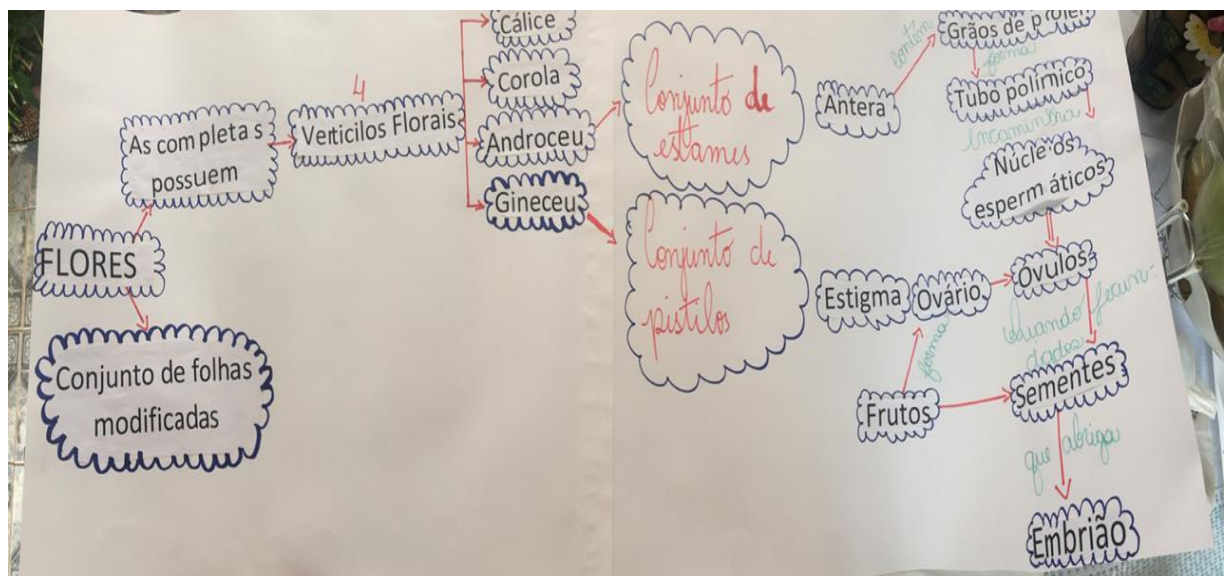 FLORES
As completas
possuem
Conjunto de folhas
modificadas
4
Verticilos Florais
Cálice
Corola
Androceu
Gineceu
Conjunto de
estames
Conjunto de
pistilos
Antera
contém
Grãos de prólen
forma
Tubo polímico
incaminha
Núcleos
espermáticos
Estigma
Ovário
Óvulos
forma
Quando fecun-
dados
Frutos
Sementes
que abriga
Embrião